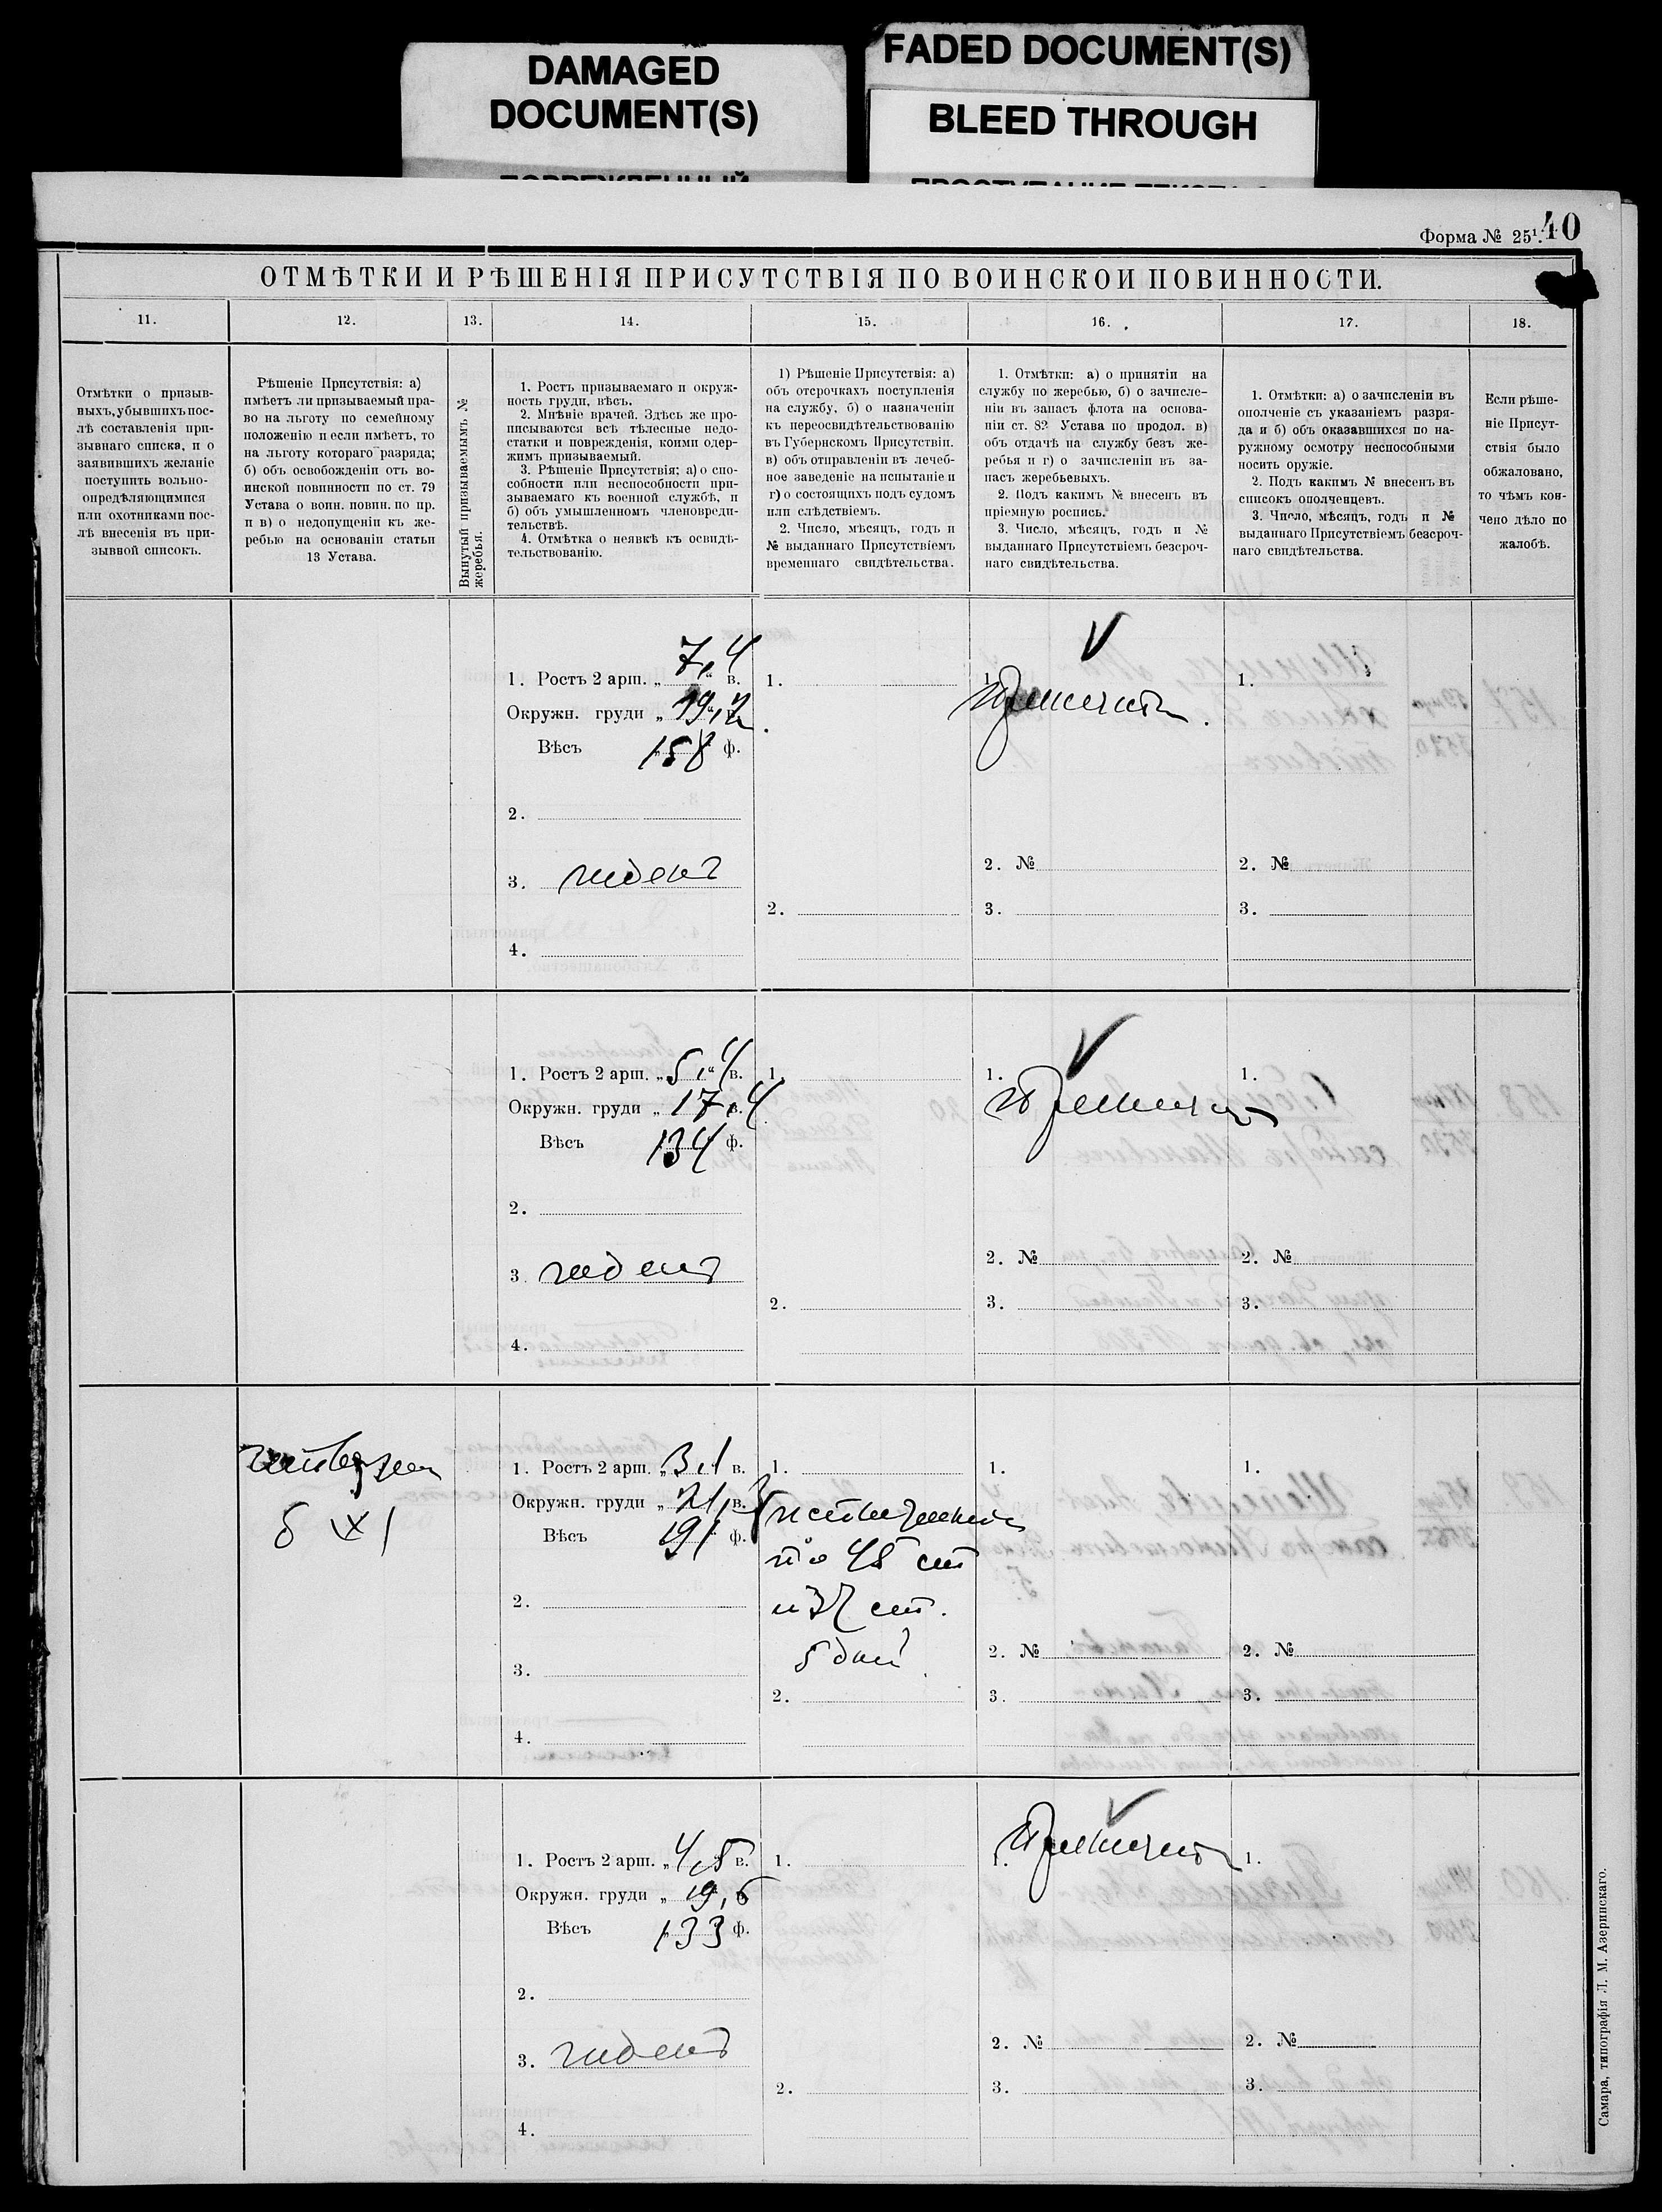 DAMAGED
DOCUMENT(S)
FADED DOCUMENT(S)
BLEED THROUGH
Форма № 25¹.
40
ОТМѢТКИ И РѢШЕНІЯ ПРИСУТСТВІЯ ПО ВОИНСКОЙ ПОВИННОСТИ.
11.
12.
13.
14.
15.
16.
17.
18.
Отмѣтки о призыв-
ныхъ, убывшихъ пос-
лѣ составленія при-
зывнаго списка, и о
заявившихъ желаніе
поступить вольно-
опредѣляющимися
или охотниками пос-
лѣ внесенія въ при-
зывной списокъ.
Рѣшеніе Присутствія: а)
имѣетъ ли призываемый пра-
во на льготу по семейному
положенію и если имѣетъ, то
на льготу котораго разряда;
б) объ освобожденіи отъ во-
инской повинности по ст. 79
Устава о воин. повин. по пр.
и в) о недопущеніи къ же-
ребью на основаніи статьи
13 Устава.
Вынутый призываемымъ №
жеребья.
1. Ростъ призываемаго и окруж-
ность груди, вѣсъ.
2. Мнѣніе врачей. Здѣсь же про-
писываются всѣ тѣлесные недо-
статки и поврежденія, коими одер-
жимъ призываемый.
3. Рѣшеніе Присутствія; а) о спо-
собности или неспособности при-
зываемаго къ военной службѣ, и
б) объ умышленномъ членовреди-
тельствѣ.
4. Отмѣтка о неявкѣ къ освидѣ-
тельствованію.
1) Рѣшеніе Присутствія: а)
объ отсрочкахъ поступленія
на службу, б) о назначеніи
къ переосвидѣтельствованію
въ Губернскомъ Присутствіи.
в) объ отправленіи въ лечеб-
ное заведеніе на испытаніе и
г) о состоящихъ подъ судомъ
или слѣдствіемъ.
2. Число, мѣсяцъ, годъ и
№ выданнаго Присутствіемъ
временнаго свидѣтельства.
1. Отмѣтки: а) о принятіи на
службу по жеребью, б) о зачисле-
ніи въ запасъ флота на основа-
ніи ст. 82 Устава по продол. в)
объ отдачѣ на службу безъ же-
ребья и г) о зачисленіи въ за-
пасъ жеребьевыхъ.
2. Подъ какимъ № внесенъ въ
пріемную роспись.
3. Число, мѣсяцъ, годъ и №
выданнаго Присутствіемъ безсроч-
наго свидѣтельства.
1. Отмѣтки: а) о зачисленіи въ
ополченіе съ указаніемъ разря-
да и б) объ оказавшихся по на-
ружному осмотру неспособными
носить оружіе.
2. Подъ какимъ № внесенъ въ
списокъ ополченцевъ.
3. Число, мѣсяцъ, годъ и №
выданнаго Присутствіемъ безсроч-
наго свидѣтельства.
Если рѣше-
ніе Присут-
ствія было
обжаловано,
то чѣмъ кон-
чено дѣло по
жалобѣ.
1. Ростъ 2 арш. „ 7,4 в.
Окружн. груди „ 19,2 в.
Вѣсъ 158 ф.
2.
3. годенъ
4.
1.
2.
1. Принятъ.
2. №
3.
1.
2. №
3.
1. Ростъ 2 арш. „ 5,4 в.
Окружн. груди „ 17,4 в.
Вѣсъ 134 ф.
2.
3. годенъ
4.
1.
2.
1. Принятъ
2. №
3.
1.
2. №
3.
1. Ростъ 2 арш. „ 3,1 в.
Окружн. груди „ 21, в.
Вѣсъ 191 ф.
2.
3.
4.
1.
по 48 ст
и 37 ст.
5 дней
2.
1.
2. №
3.
1.
2. №
3.
1. Ростъ 2 арш. „ 4,5 в.
Окружн. груди „ 19,6 в.
Вѣсъ 133 ф.
2.
3. годенъ
4.
1.
2.
1. Принятъ
2. №
3.
1.
2. №
3.
Самара, типографія Л. М. Азеринскаго.